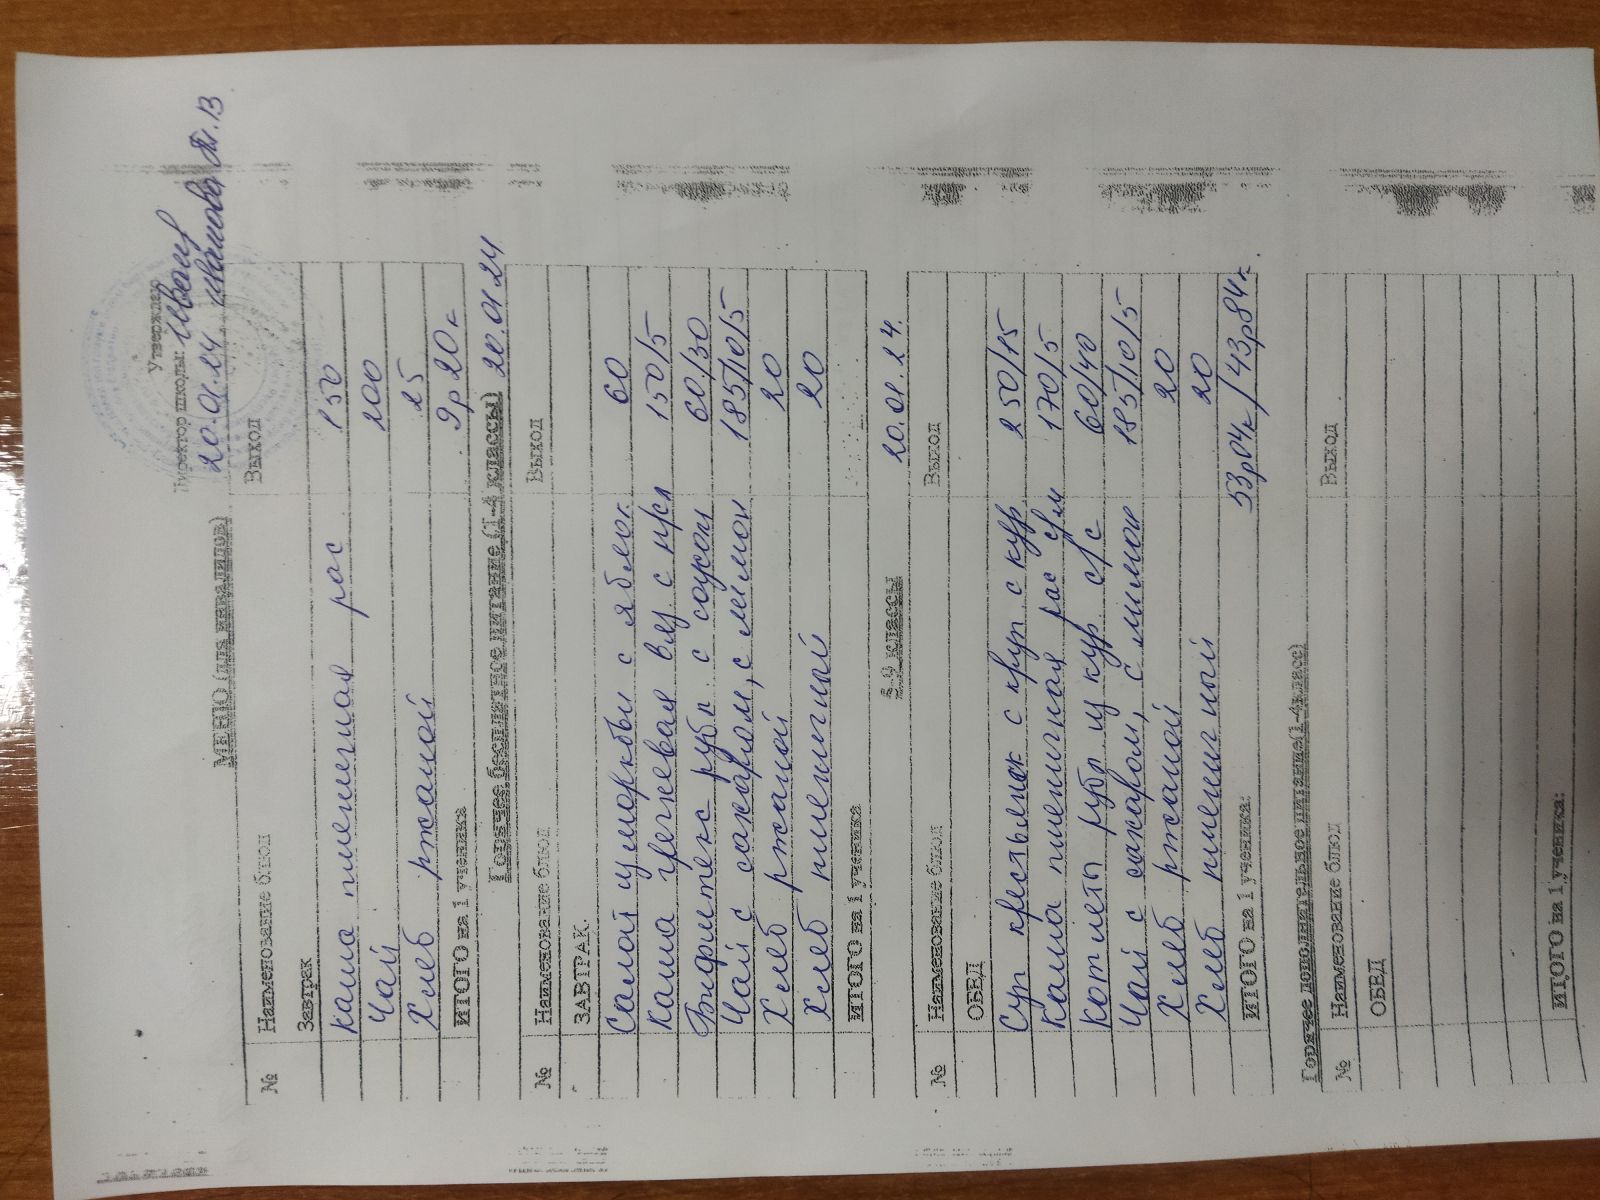 Утверждаю
Директор школы:
20.01.24 Иванова
МЕНЮ (для инвалидов)
№ Наименование блюд Выход
Завтрак
Каша пшеничная рас 150
Чай 200
Хлеб ржаной 25
ИТОГО на 1 ученика 9р 20к
Горячее бесплатное питание (1-4 классы) 20.01.24
№ Наименование блюд Выход
ЗАВТРАК
Салат из моркови с яблок. 60
Каша гречневая вяз с м/сл 150/5
Бифштекс рубл с соусом 60/30
Чай с сахаром, с лимон 185/10/5
Хлеб ржаной 20
Хлеб пшеничный 20
ИТОГО на 1 ученика
5-9 классы 20.01.24.
№ Наименование блюд Выход
ОБЕД
Суп крестьянск с круп с кур 250/15
Каша пшеничная рас с/м 170/5
Котлеты рубл из кур с/с 60/40
Чай с сахаром, с лимон 185/10/5
Хлеб ржаной 20
Хлеб пшеничный 20
ИТОГО на 1 ученика: 53р04к/43р84к.
Горячее дополнительное питание(1-4класс)
№ Наименование блюд Выход
ОБЕД
ИТОГО на 1 ученика: